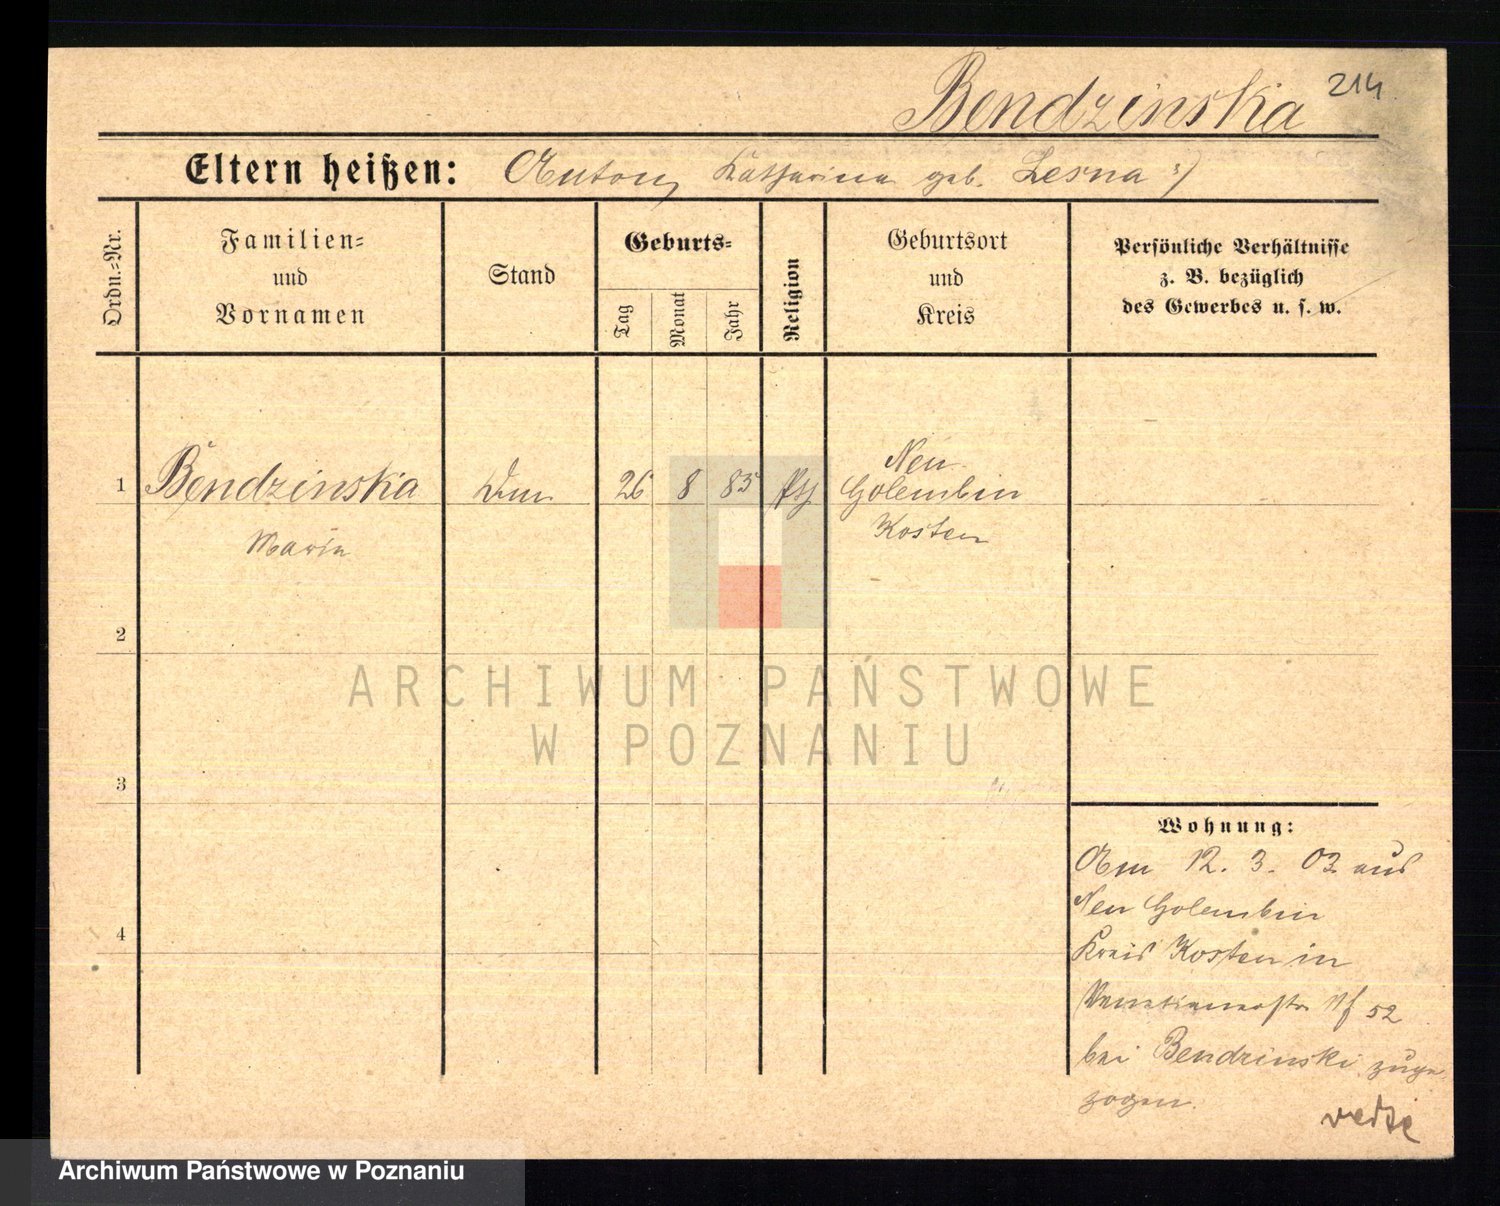 214
Bendzinska
Eltern heißen: Anton, Katharina geb. Lesna
Ordn.=Nr.
Familien=
und
Vornamen
Stand
Geburts=
Tag
Monat
Jahr
Religion
Geburtsort
und
Kreis
Persönliche Verhältnisse
z. B. bezüglich
des Gewerbes u. s. w.
1 Bendzinska 26 8 85 Neu
Golembin
Maria Kosten
2
3
4
Wohnung:
Am 12. 3. 03 aus
Neu Golembin
Kreis Kosten in
52
bei Bendzinski zuge
zogen.
ARCHIWUM PAŃSTWOWE
W POZNANIU
Archiwum Państwowe w Poznaniu